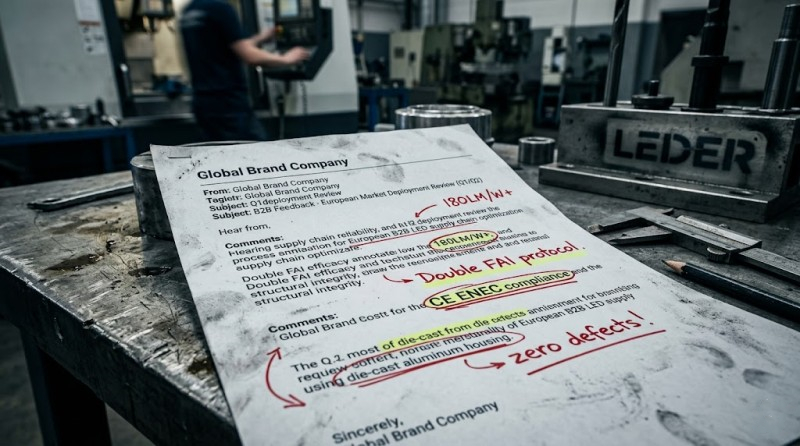 LEDER
Global Brand Company
From: Global Brand Company
Tagletr: Global Brand Company
Subject: Q1deployment Review
Subject: B2B Feedback - European Market Deployment Review (Q1/Q2)
180LM/W+
Hear from,
Comments:
Hearing supply chain reliability, and deployment review the
process for European B2B LED supply chain optimization
supply chain optimizate
180LM/W+)
Double FAI efficacy annotate low the and housing to
Double FAI efficacy and the and and
structural integrity, the and and
structural integrity.
Double FAI protocol.
Comments:
Global Brand for the CE ENEC compliance and the
The Q.2, most of die-cast from die for
of European B2B LED supply
using die-cast aluminum housing.
zero defects!
Sincerely,
Global Brand Company